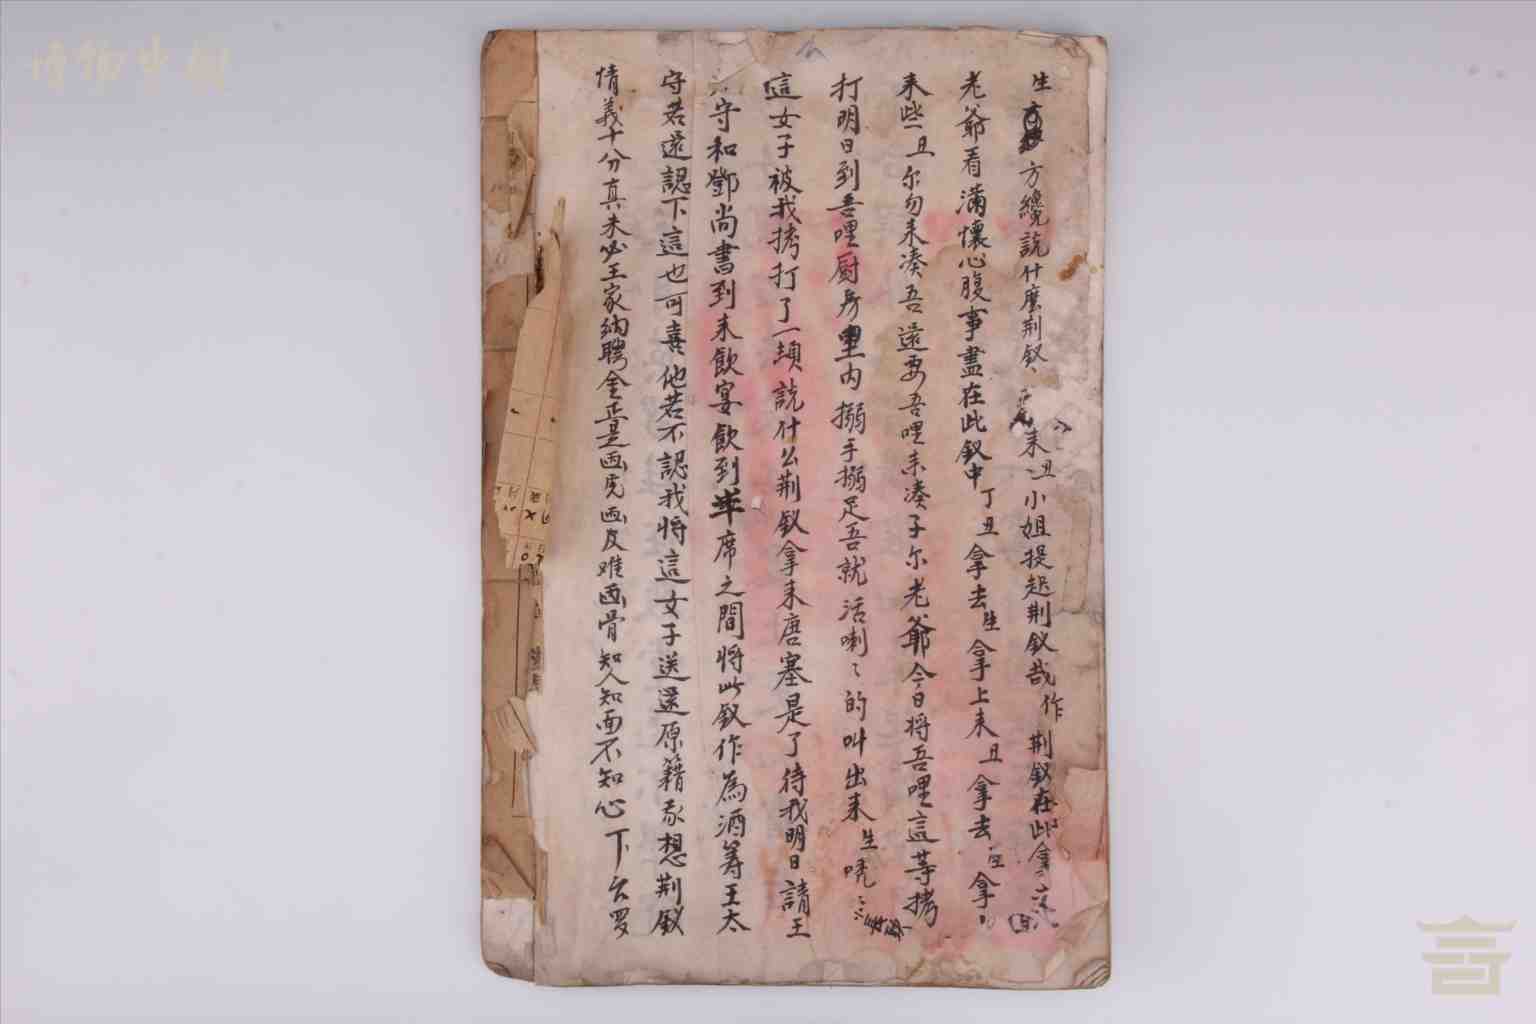 生方纔說什麼荆釵來丑小姐提起荆釵哉作荆釵在此拿
老爺看滿懷心腹事盡在此釵中丁丑拿去生拿上来丑拿去生拿
来些丑尔勿来凑吾還要吾哩来凑子尔老爺今日将吾哩這等拷
打明日到吾哩厨房里内搦手搦足吾就活喇〻的叫出来生唬
這女子被我拷打了一頓說什么荆釵拿来唐塞是了待我明日請王
守和鄧尚書到来飲宴飲到半席之間将此釵作為酒筹王太
守若還認下這也可喜他若不認我将這女子送還原籍我想荆釵
情義十分真未必王家納聘金正是画虎画皮难画骨知人知面不知心下台罗